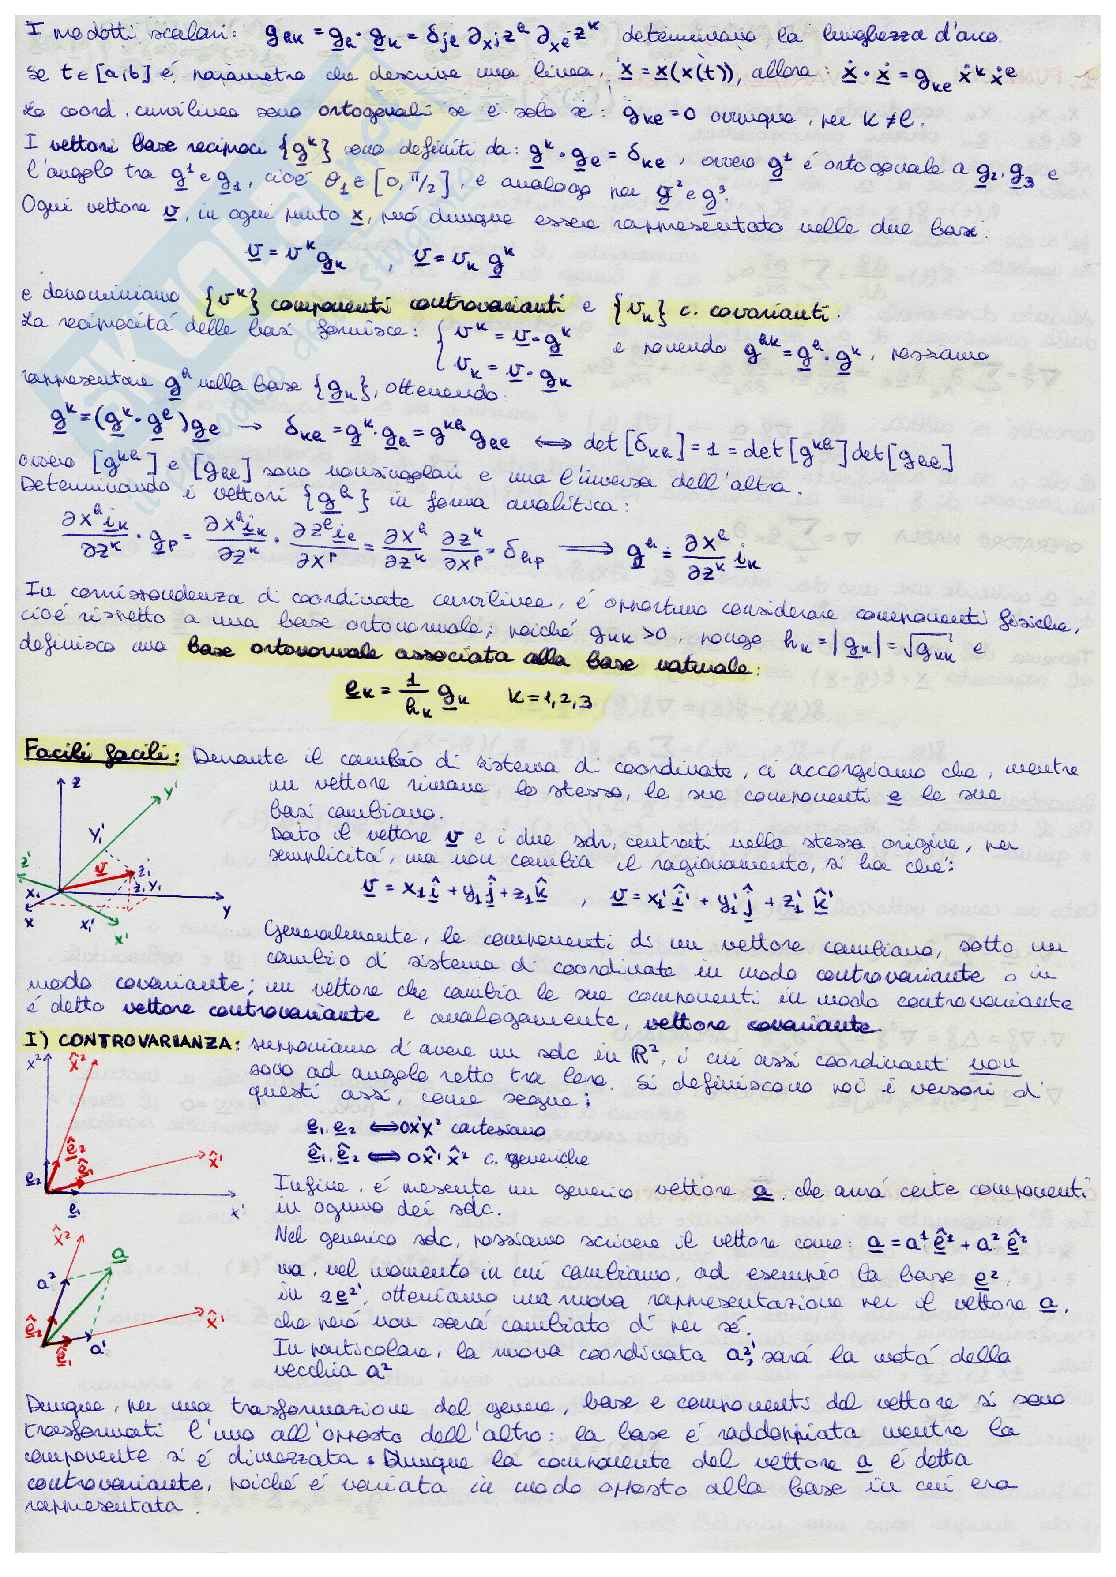 I prodotti scalari: g_ek = g_e · g_k = δ_je ∂_xj z^e ∂_xe z^k determinano la lunghezza d'arco.
Se t ∈ [a,b] é parametro che descrive una linea, x = x(x(t)), allora: ẋ · ẋ = g_ke ẋ^k ẋ^e
Le coord. curvilinee sono ortogonali se e solo se: g_ke = 0 ovunque, per k ≠ l.
I vettori base reciproci {g^k} sono definiti da: g^k · g_e = δ_ke, ovvero g^1 é ortogonale a g_2, g_3 e
l'angolo tra g^1 e g_1, cioé θ_1 ∈ [0, π/2], e analogo per g^2 e g^3.
Ogni vettore v, in ogni punto x, può dunque essere rappresentato nelle due basi:
v = v^k g_k , v = v_k g^k
e denominiamo {v^k} componenti controvarianti e {v_k} c. covarianti.
La reciprocitá delle basi fornisce: { v^k = v · g^k
v_k = v · g_k
e ponendo g^ek = g^e · g^k, possiamo
rappresentare g^e nella base {g_k}, ottenendo:
g^k = (g^k · g^e) g_e → δ_ke = g^k · g_e = g^ke g_ee ⟺ det[δ_ke] = 1 = det[g^ke] det[g_ee]
ovvero [g^ke] e [g_ee] sono nonsingolari e una l'inversa dell'altra.
Determinando i vettori {g^e} in forma analitica:
∂x^e i_k/∂z^k · g_p = ∂x^e i_k/∂z^k · ∂z^e i_e/∂x^p = ∂x^e/∂z^k ∂z^k/∂x^p = δ_ep ⟹ g^e = ∂x^e/∂z^k i_k
In corrispondenza di coordinate curvilinee, é opportuno considerare componenti fisiche,
cioé rispetto a una base ortonormale; poiché g_kk > 0, pongo h_k = |g_k| = √g_kk e
definisco una base ortonormale associata alla base naturale:
e_k = 1/h_k g_k k = 1, 2, 3
Facili facili: Durante il cambio di sistema di coordinate, ci accorgiamo che, mentre
un vettore rimane lo stesso, le sue componenti e le sue
basi cambiano.
Dato il vettore v e i due sdr, centrati nella stessa origine, per
semplicitá, ma non cambia il ragionamento, si ha che:
v = x1 î + y1 ĵ + z1 k̂ , v = x1' î' + y1' ĵ' + z1' k̂'
z y' y1' z' v z1' z1 y1 x1 x x1' x' y
Generalmente, le componenti di un vettore cambiano, sotto un
cambio di sistema di coordinate in modo controvariante o in
modo covariante; un vettore che cambia le sue componenti in modo controvariante
é detto vettore controvariante e analogamente, vettore covariante.
I) CONTROVARIANZA: supponiamo d'avere un sdc in ℝ², i cui assi coordinati non
sono ad angolo retto tra loro. Si definiscono poi i versori di
questi assi, come segue:
e1, e2 ⟺ 0x'x² cartesiano
ê1, ê2 ⟺ 0x̂'x̂² c. generiche
x² x̂² ê2 ê1 x̂' e2 e1 x'
Infine, é presente un generico vettore a, che avrá certe componenti
in ognuno dei sdc.
Nel generico sdc, possiamo scrivere il vettore come: a = a^1 ê^1 + a² ê²
ma, nel momento in cui cambiamo, ad esempio la base e²,
in 2e²', otteniamo una nuova rappresentazione per il vettore a,
che peró non sará cambiato di per sé.
In particolare, la nuova coordinata a²', sará la metá della
vecchia a²
x̂² a a² ê2 x̂' ê1 a'
Dunque, per una trasformazione del genere, base e componenti del vettore si sono
trasformati l'uno all'opposto dell'altro: la base é raddoppiata mentre la
componente si é dimezzata. Dunque la componente del vettore a é detta
controvariante, poiché é variata in modo opposto alla base in cui era
rappresentata.